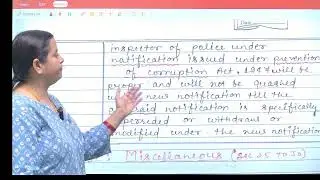 inspector of police under
notification issued under prevention
of corruption Act, 1947 will be
proper and will not be quashed
new notification till the
said notification is specifically
or withdraw or
modified under the new notification
Miscellaneous (sec 25 to 30)